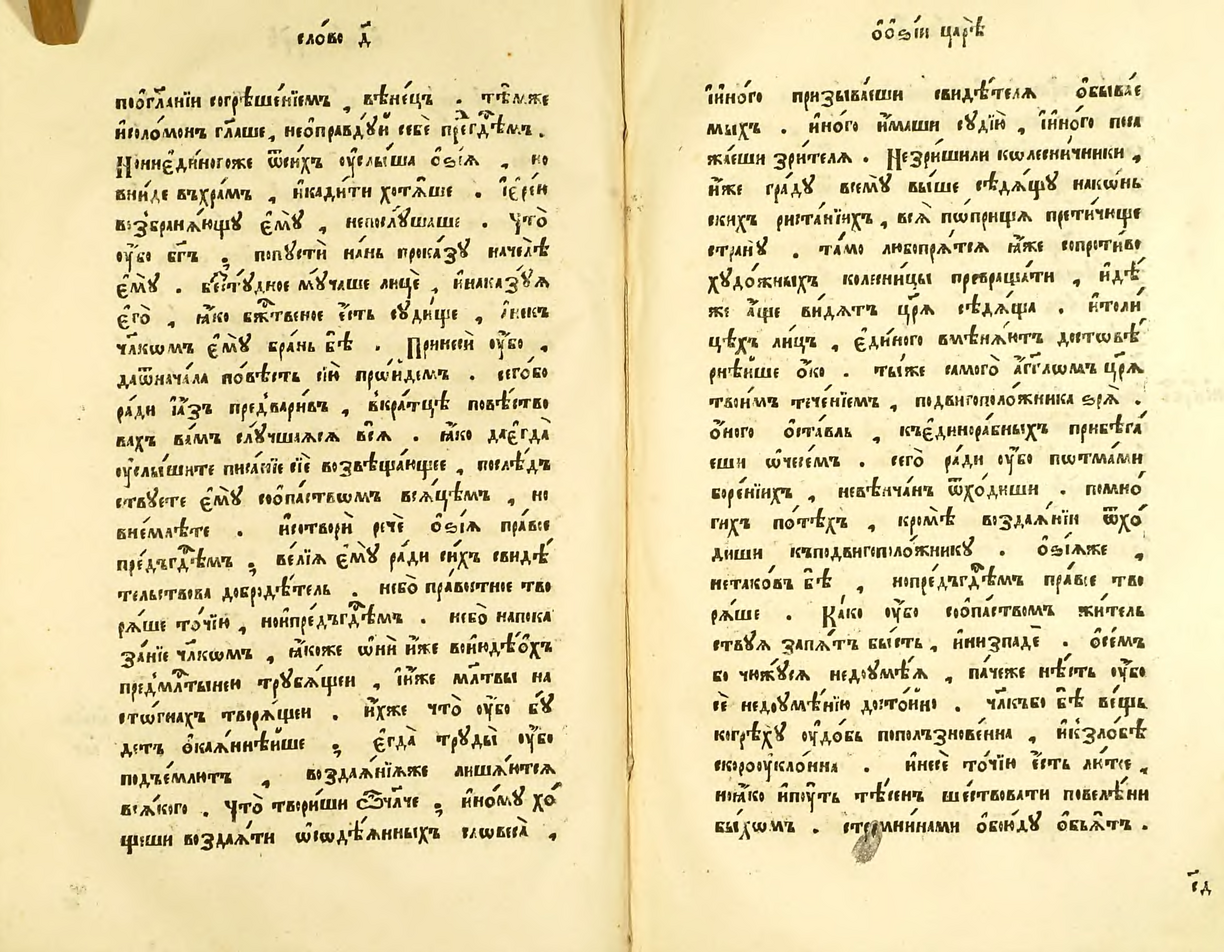 сло́во д҃
поѻ҆гла́нїи согрѣше́нїемъ , вѣне́цъ . тѣ́мже
и҆соло́монъ гл҃аше , неѡправду́й себѐ пре́гдⷭ҇ѣмъ .
Нони҆є҆ди́ногоже ѿси́хъ ѹ҆слы́ша ѻ҆ѕі́ѧ , но
вни́де въхра́мъ , и҆кади́ти хотѧ́ше . і҆ере́и
возбранѧ́ющꙋ є҆мꙋ̀ , непослꙋ́шаше . Что̀
ѹ҆́бо бг҃ъ ; попꙋстѝ на́нь проказꙋ̀ начелѣ̀
є҆мꙋ̀ . бестꙋ́дное мꙋ́чаше лицѐ , и҆наказꙋ́ѧ
є҆го̀ , ꙗ҆́ко бж҃твеное є҆́сть сꙋди́ще , і҆некъ
чл҃кѡмъ є҆мꙋ̀ бра́нь бѣ̀ . Принесѝ ѹ҆́бо ,
даѿнача́ла по́вѣсть сїю̀ прѡи́демъ . сего́бо
ра́ди і҆а҆́зъ предвари́въ , вкра́тцѣ повѣ́ство
вахъ ва́мъ слꙋ́чшаѧсѧ всѧ̀ . ꙗ҆́ко дає҆гда̀
ѹ҆слы́шите писа́нїе сїѐ возвѣща́ющее , послѣ́дъ
ствꙋете є҆мꙋ̀ соѻ҆па́ствѡмъ всѧ́цѣмъ , но
внемлѣ́те . и҆сотворѝ речѐ ѻ҆ѕі́ѧ пра́вое
пре́дъгдⷭ҇ѣмъ ; ве́лїѧ є҆мꙋ̀ ра́ди си́хъ свидѣ́
тельствова добродѣ́тель . небо̀ пра́востное тво
рѧ́ше то́чїю , нои҆пре́дъгдⷭ҇ѣмъ . небо̀ напока
за́нїе чл҃кѡмъ , ꙗ҆́коже ѡ҆нѝ и҆́же вои҆юдѣ́ѻхъ
предмл҃тынеи трꙋбѧ́щеи , і҆и҆́же мл҃твы на
сто́гнахъ творѧ́щеи . и҆́хже что̀ ѹ҆́бо бꙋ́
детъ ѻ҆каѧ́ннѣйше ; є҆гда̀ трꙋды̀ ѹ҆́бо
подъе́млютъ , воздаѧ́нїѧже лиша́ютсѧ
всѧ́кого . Что̀ твори́ши ѽчл҃че ; и҆но́мꙋ хо́
щеши воздаѧ́ти ѡ҆сѡдѣ́ѧнныхъ словеса̀ ,
ѻ҆ѻ҆ѕі́и царѣ̀
і҆и҆но́го призыва́еши свидѣ́телѧ ѻ҆быва́е
мыхъ . и҆но́го и҆́маши сꙋдїю̀ , і҆и҆но́го поса
жа́еши зри́телѧ . Незри́шили кѡлесни́чники ,
и҆́же гра́дꙋ всемꙋ̀ вы́ше сѣдѧ́щꙋ нако́нь
скихъ риста́нїихъ , всѧ̀ пѡ́прища прети́чюще
странꙋ̀ . та́мо любопрѧ́тсѧ ꙗ҆́же сопроти́во
хꙋдо́жныхъ колесни́цы превраща́ти , и҆дѣ́
же а҆́ще ви́дѧтъ цр҃ѧ̀ сѣдѧ́ща . и҆толи́
цѣхъ ли́цъ , є҆ди́ного вмѣнѧ́ютъ достовѣ́
рнѣйше ѻ҆́ко . ты́же самого̀ а҆́гг҃лѡмъ цр҃ѧ̀
твои́мъ тече́нїемъ , подвигополо́жника ѕрѧ̀ .
ѻ҆́ного ѻ҆ста́вль , къє҆динора́бныхъ прибѣга́
еши ѡ҆чесе́мъ . сего̀ ра́ди ѹ҆́бо потма́ми
боре́нїихъ , невѣнча́нъ ѿхо́диши . помно́
гихъ по́тѣхъ , кромѣ̀ воздаѧ́нїи ѿхо́
диши къподвигополо́жникꙋ . ѻ҆ѕі́ѧже ,
нетако́въ бѣ̀ , нопре́дъгдⷭ҇ѣмъ пра́вое тво
рѧ́ше . Ка́ко ѹ҆́бо соѻ҆па́ствомъ жи́тель
ствꙋѧ запѧ́тъ бы́сть , и҆низпадѐ . ѻ҆се́мъ
бо чю́жꙋсѧ недоꙋмѣ́ѧ , па́чеже нѣ́сть ѹ҆́бо
сѐ недоꙋмѣ́нїю досто́йно . чл҃къбо бѣ̀ ве́щь
когрѣхꙋ̀ ѹ҆до́бь пополъзнове́нна , и҆кзло́бѣ
скороѹ҆кло́нна . и҆несѐ то́чїю є҆́сть лю́тое ,
ноꙗ҆́ко и҆пꙋ́ть тѣ́сенъ ше́ствовати повелѣ́ни
бы́хѡмъ . стремни́нами ѻ҆бою́дꙋ ѻ҆б̾ѧ́тъ .
є҆д